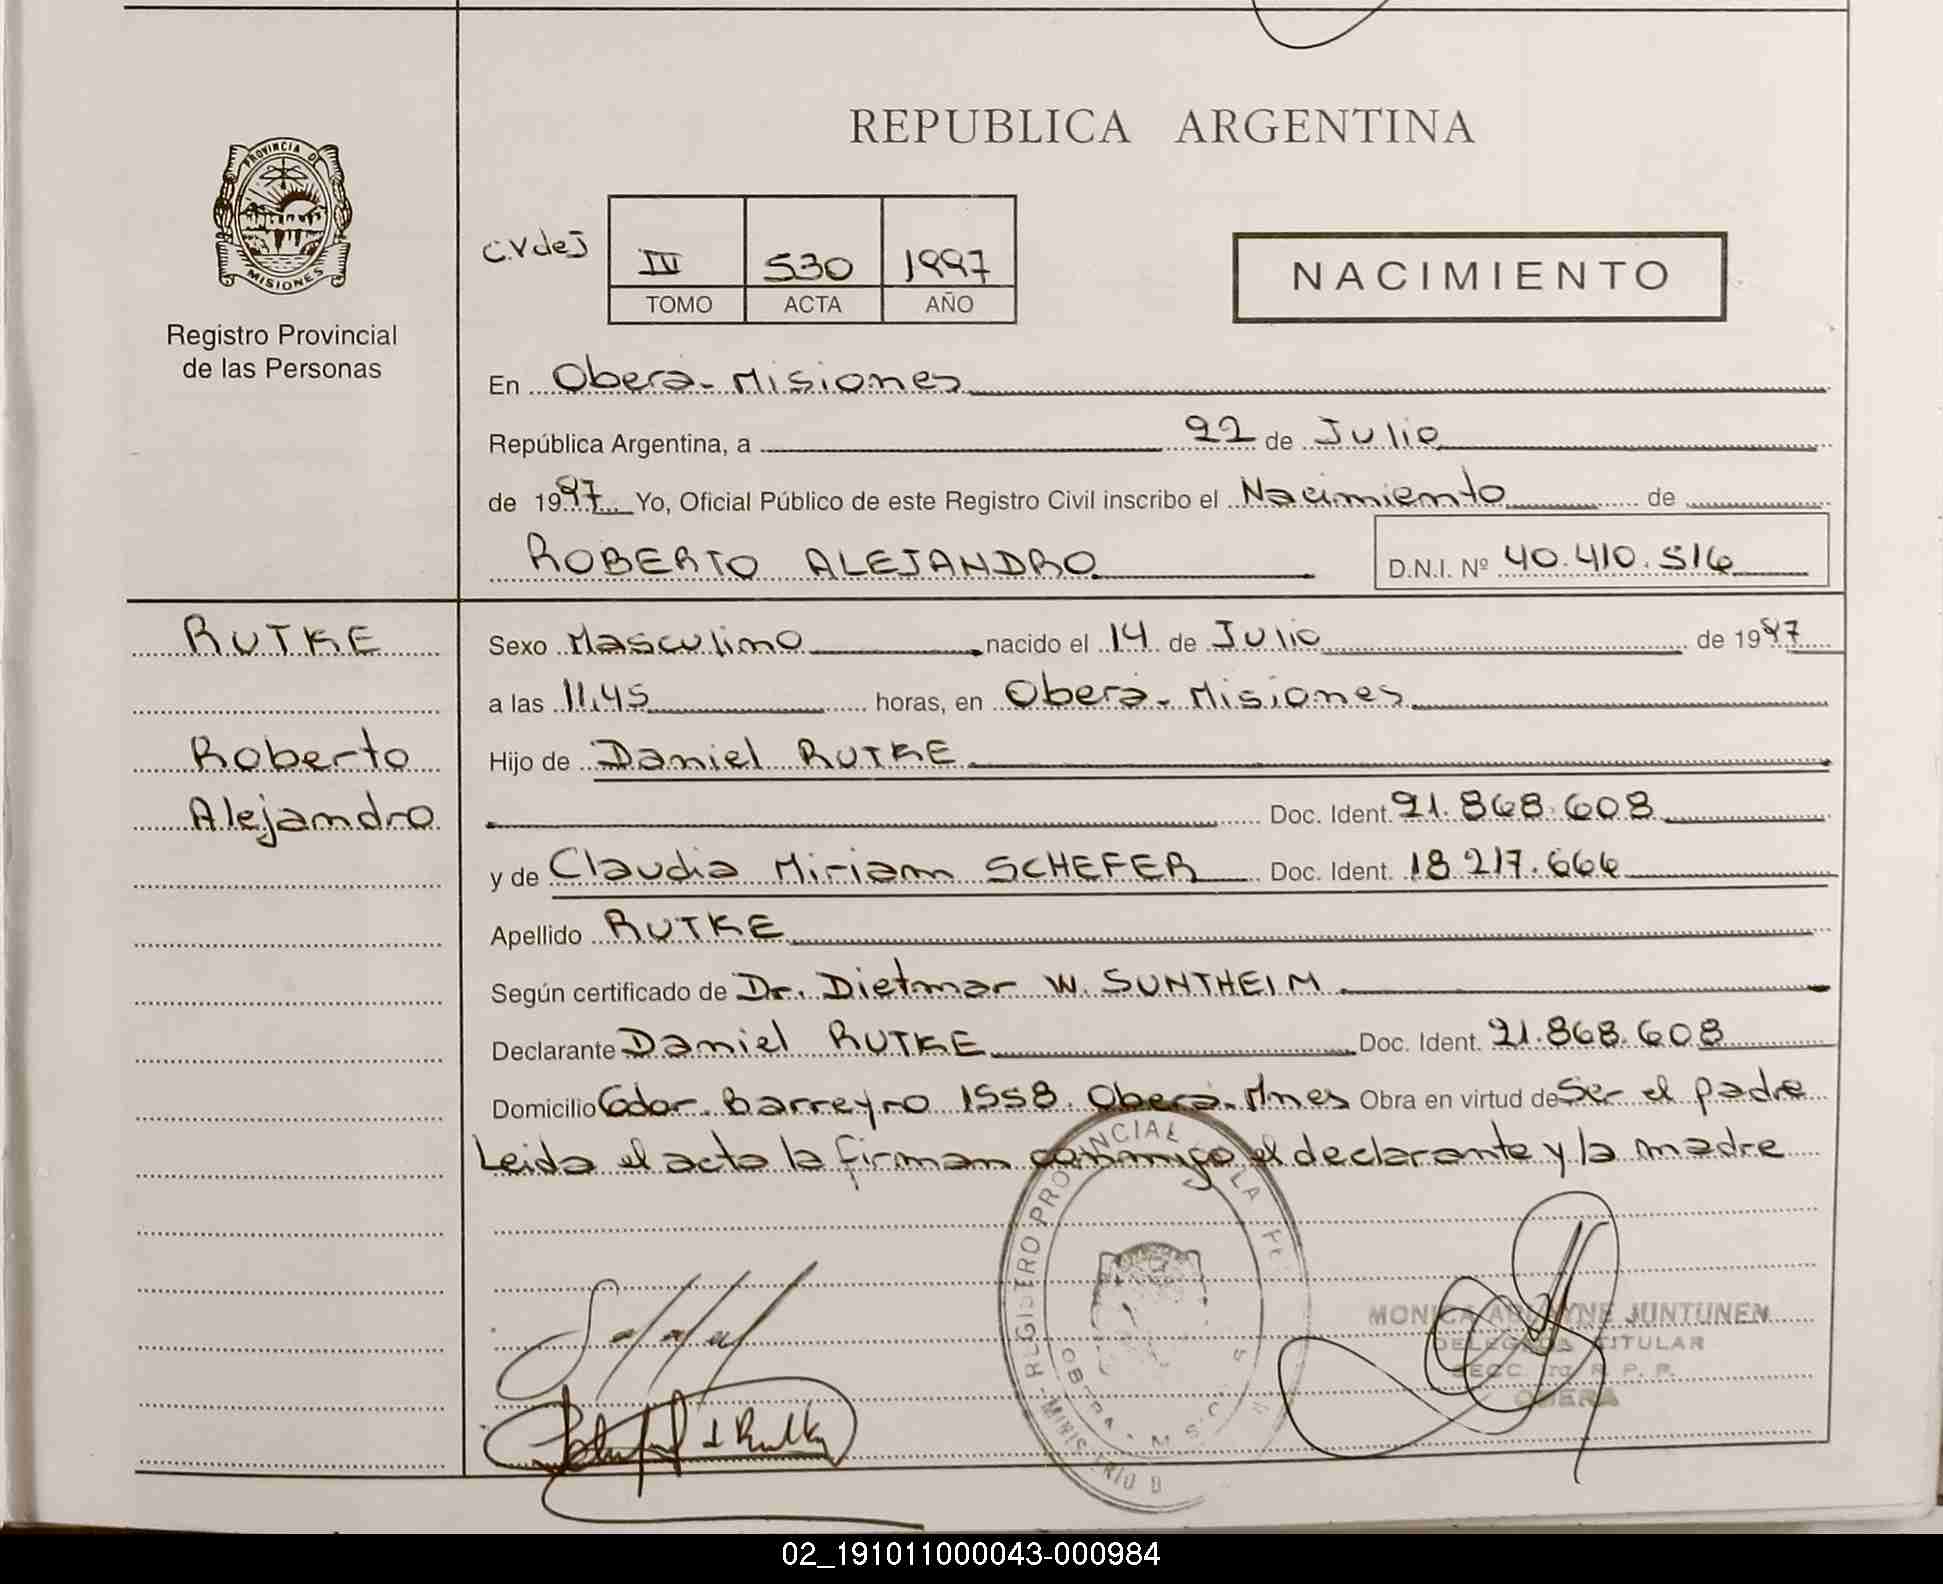 REPUBLICA ARGENTINA
PROVINCIA DE
MISIONES
Registro Provincial
de las Personas
C.V de J
530 1997
TOMO ACTA AÑO
NACIMIENTO
En Oberá - Misiones
República Argentina, a 22 de Julio
de 1997 Yo, Oficial Público de este Registro Civil inscribo el Nacimiento de
ROBERTO ALEJANDRO D.N.I. Nº 40.410.516
RUTKE
Roberto
Alejandro
Sexo Masculino nacido el 14 de Julio de 1997
a las 11,45 horas, en Oberá - Misiones
Hijo de Daniel RUTKE
Doc. Ident. 21.868.608
y de Claudia Miriam SCHEFER Doc. Ident. 18.217.666
Apellido RUTKE
Según certificado de Dr. Dietmar W. SUNTHEIM
Declarante Daniel RUTKE Doc. Ident. 21.868.608
Domicilio Gdor. Barreyro 1558. Oberá. Mnes Obra en virtud de Ser el padre
Leida el acta la firman conmigo el declarante y la madre
REGISTRO PROVINCIAL
MONICA JUNTUNEN
DELEGADA TITULAR
SECC. R. P. P.
OBERA
02_191011000043-000984